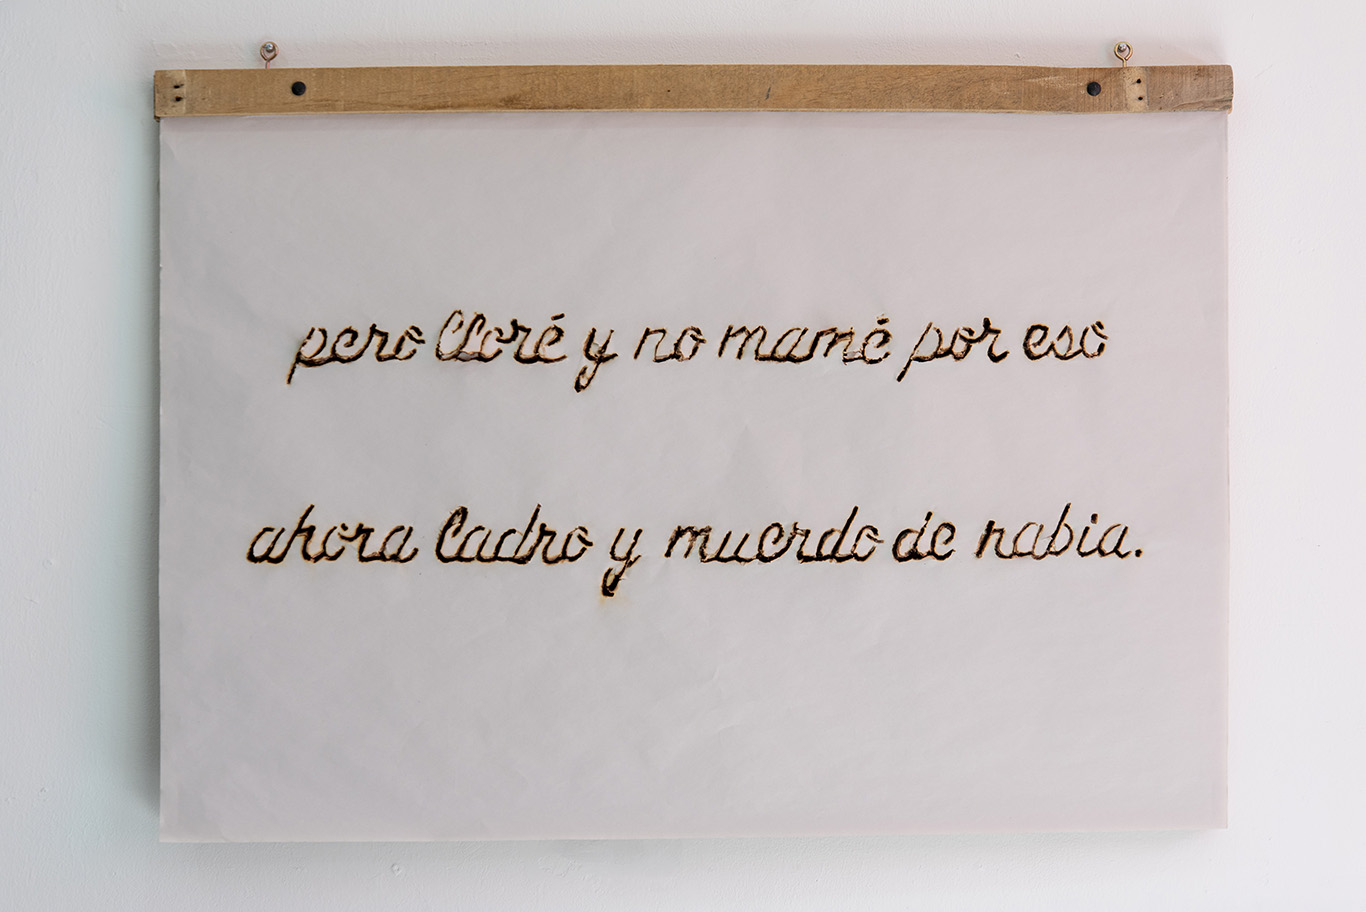 pero lloré y no mamé por eso
ahora ladro y muerdo de rabia.